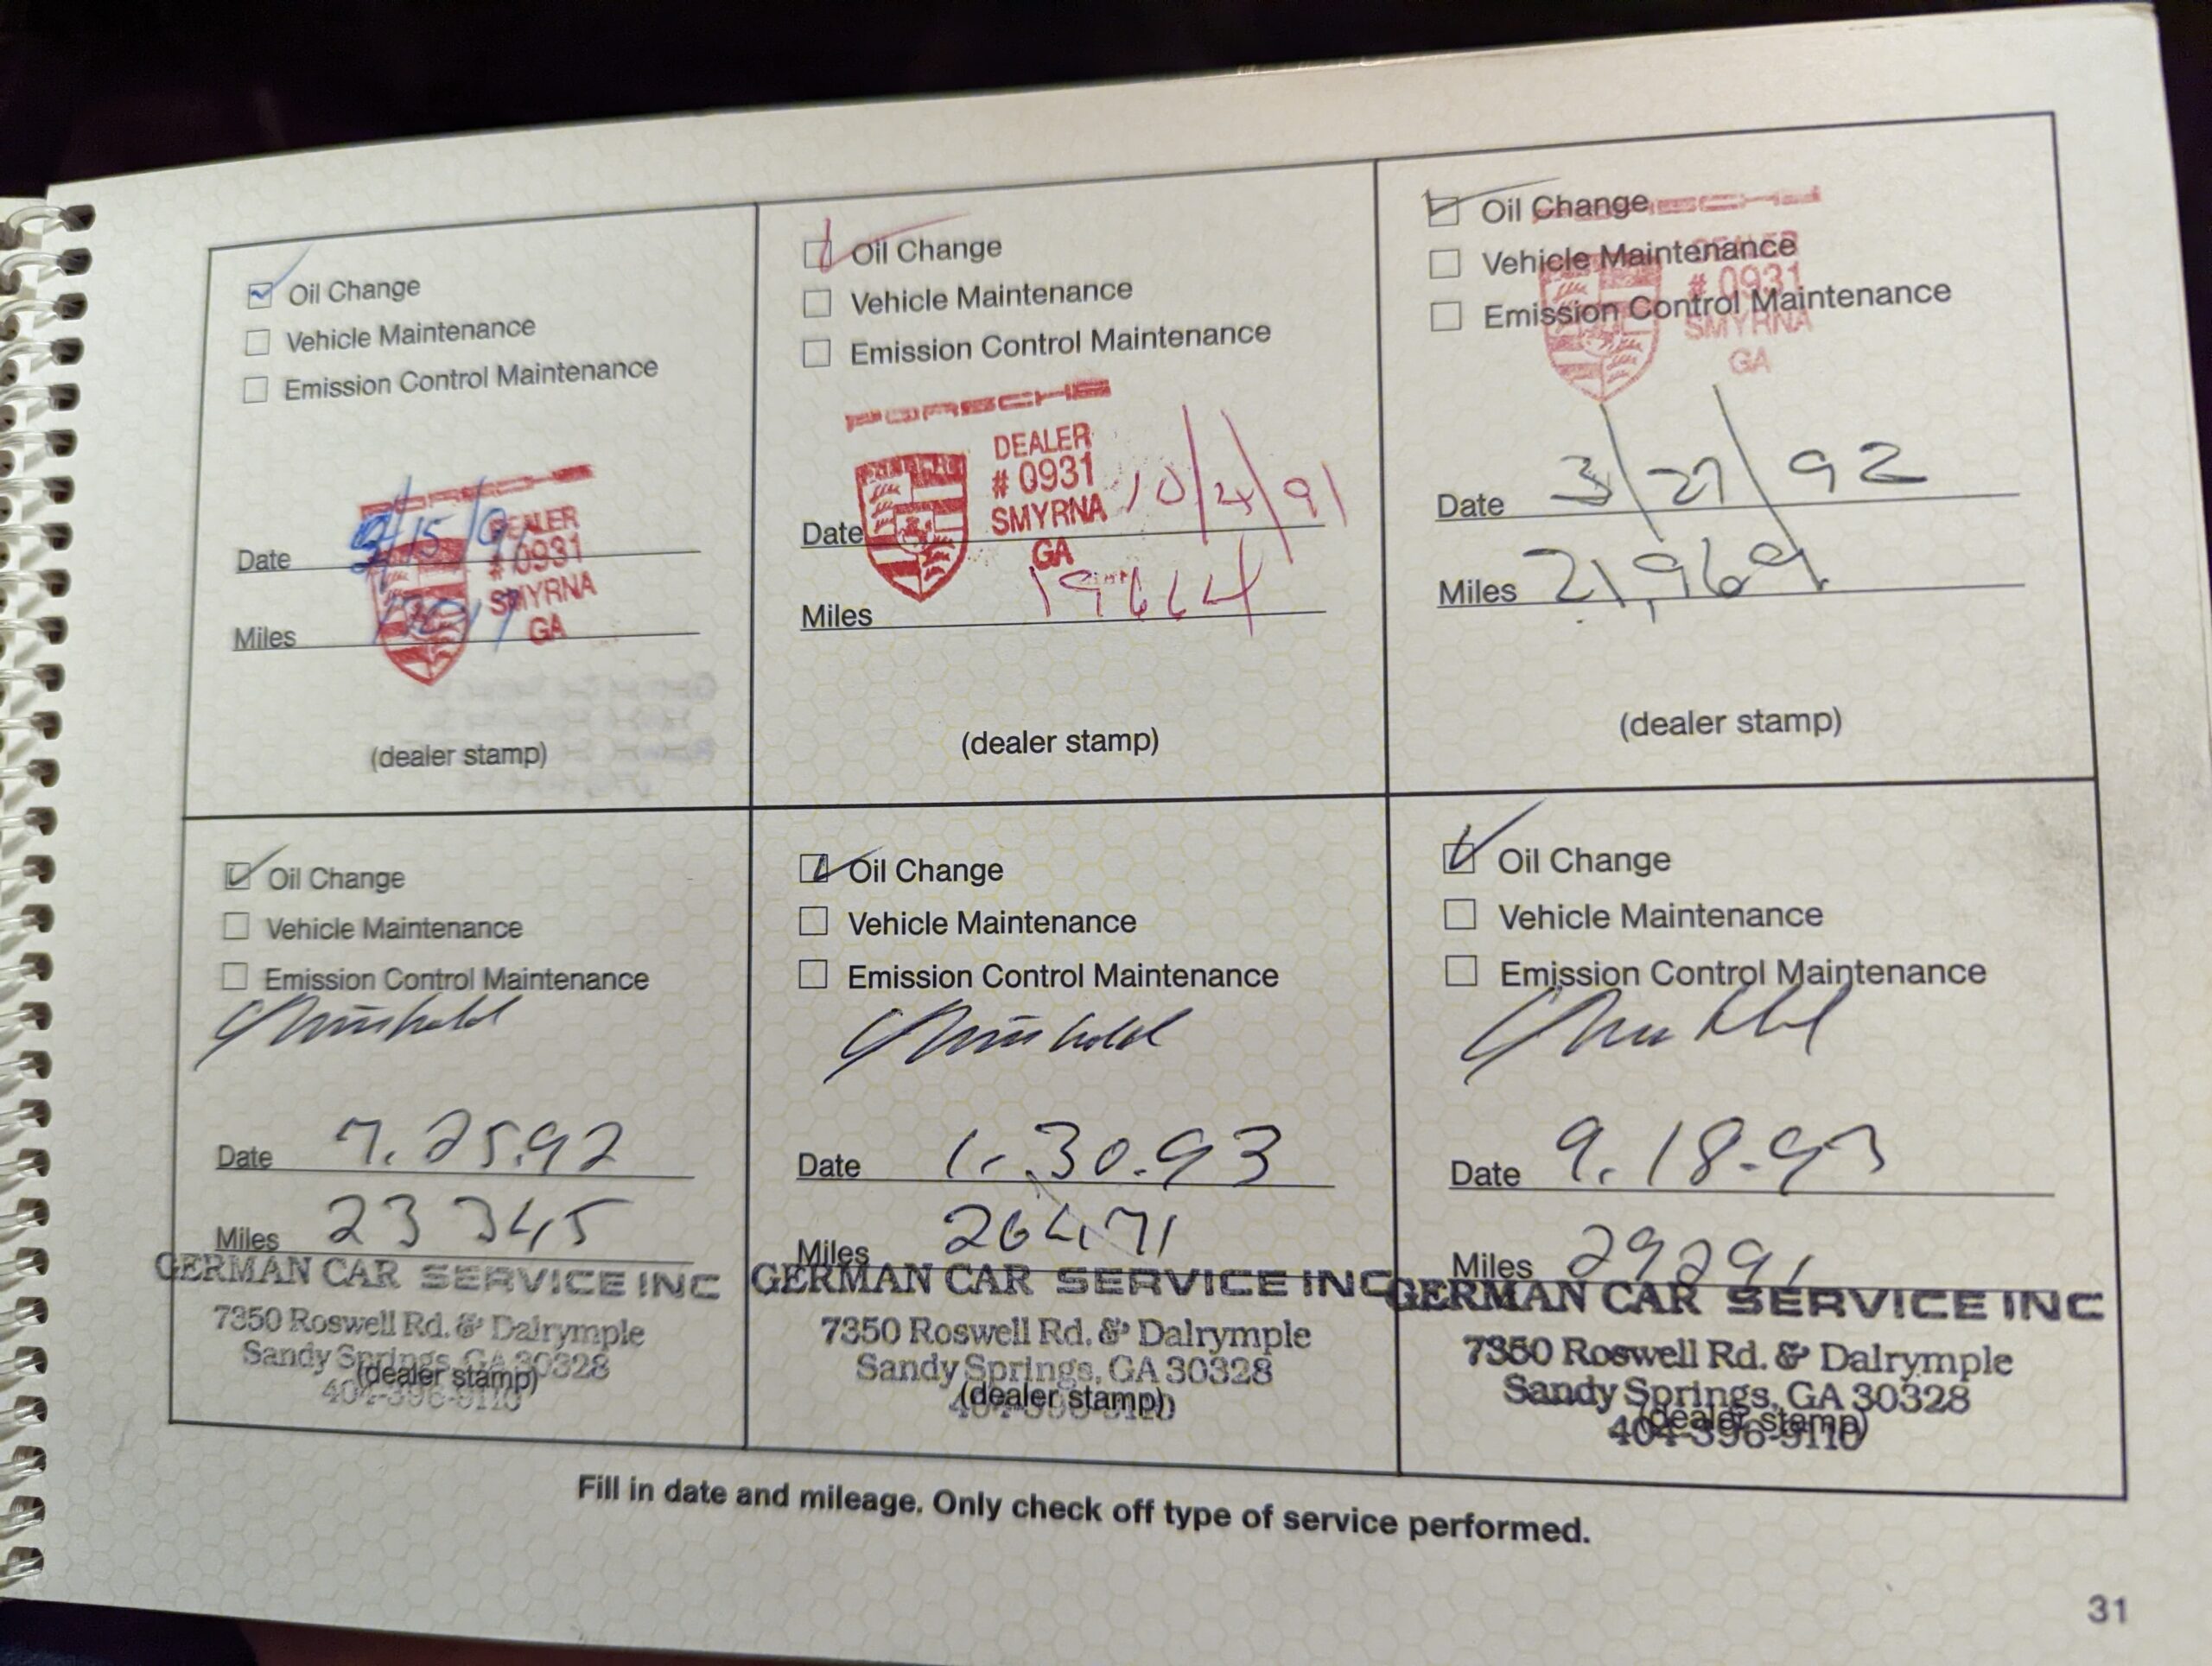 Oil Change
Vehicle Maintenance
Emission Control Maintenance
PORSCHE
DEALER
# 0931
SMYRNA
GA
Date
Miles
(dealer stamp)
Oil Change
Vehicle Maintenance
Emission Control Maintenance
PORSCHE
DEALER
# 0931
SMYRNA
GA
Date 10/4/91
Miles 19664
(dealer stamp)
Oil Change
Vehicle Maintenance
Emission Control Maintenance
PORSCHE
DEALER
# 0931
SMYRNA
GA
Date 3/27/92
Miles 21,969
(dealer stamp)
Oil Change
Vehicle Maintenance
Emission Control Maintenance
Date 7.25.92
Miles 23 345
GERMAN CAR SERVICE INC
7350 Roswell Rd. & Dalrymple
Sandy Springs, GA 30328
(dealer stamp)
404-396-9110
Oil Change
Vehicle Maintenance
Emission Control Maintenance
Date 1.30.93
Miles 26471
GERMAN CAR SERVICE INC
7350 Roswell Rd. & Dalrymple
Sandy Springs, GA 30328
(dealer stamp)
404-396-9110
Oil Change
Vehicle Maintenance
Emission Control Maintenance
Date 9.18.93
Miles 29291
GERMAN CAR SERVICE INC
7350 Roswell Rd. & Dalrymple
Sandy Springs, GA 30328
(dealer stamp)
404-396-9110
Fill in date and mileage. Only check off type of service performed.
31